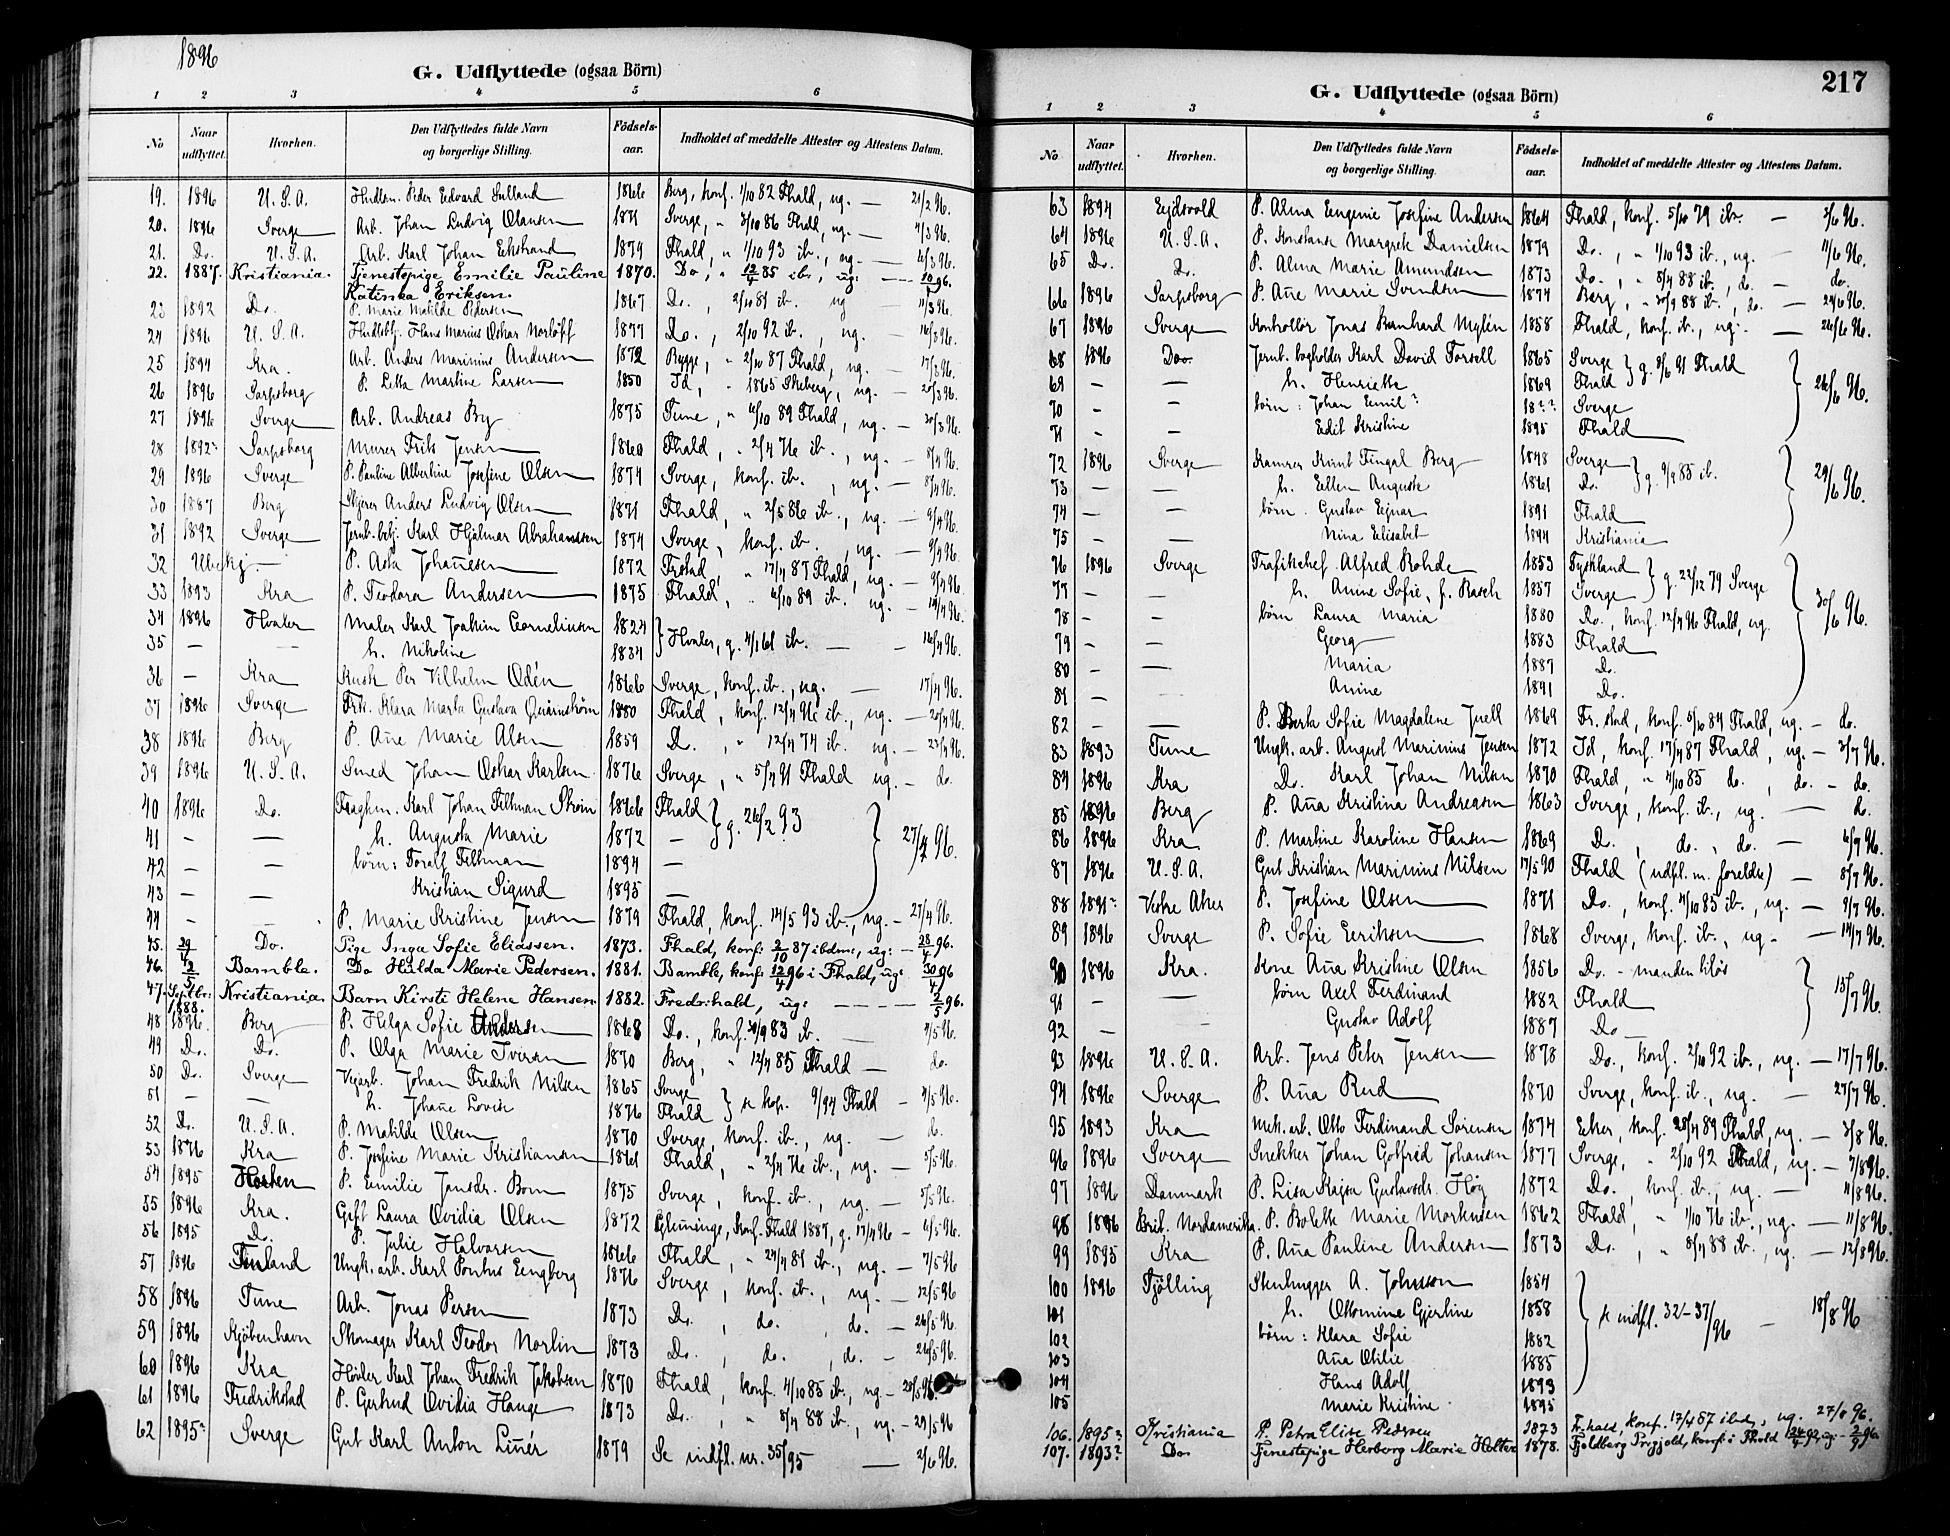 1896
G. Udflyttede (ogsaa Börn)
1 2 3 4 5 6
No Naar udflyttet. Hvorhen. Den Udflyttedes fulde Navn og borgerlige Stilling. Födsels-aar. Indholdet af meddelte Attester og Attestens Datum.
19. 1896 U.S.A. Peder Edvard 1866 Berg, konf. 1/10 82 Fhald, ug. — 21/2 96.
20. 1896 Sverge Arb. Johan Ludvig Olausen 1871 Sverge, " 3/10 86 Fhald, ug. — 4/3 96.
21. Do. U.S.A. Arb. Karl Johan Ekstrand 1879 Fhald, " 1/10 93 ib., ug. — 6/3 96.
22. 1887. Kristiania. Tjenestepige Emilie Pauline Katinka Eriksen. 1870. Do, " 12/4 85 ib., ug: — 10/3 96.
23 1892 Do. P. Marie Matilde Pedersen 1867 Do., 2/10 81 ib. ug 11/3 96.
24 1896 U.S.A. Hans Marius Oskar 1877 Do., 2/10 92 ib., ug. 16/3 96.
25 1894 Kra. Arb. Anders Marinius Andersen 1872 Rygge, " 2/10 87 Fhald, ug. — 17/3 96.
26 1896 Sarpsborg P. Letta Martine Larsen 1850 Id, " 1865 Skeberg, ug. — 28/3 96.
27 1896 Sverge Arb. Andreas By 1875 Tune, " 6/10 89 Fhald, ug. — 30/3 96.
28 1892? Sarpsborg Murer Frits Jensen 1860 Fhald, " 2/4 76 ib., ug. — 8/4 96.
29 1896 Sverge P. Pauline Albertine Josefine Olsen 1874 Sverge, konf. ib., ug. — 8/4 96.
30 1887 Berg Anders Ludvig Olsen 1871 Fhald, " 2/5 86 ib., ug. — 9/4 96.
31 1892 Sverge Jernb.betj. Karl Hjalmar Abrahamssen 1874 Sverge, konf. ib., ug. — 9/4 96.
32 Ubekj. — P. Asta Johañesen 1872 Frstad, " 17/4 87 Fhald, ug. — 9/4 96.
33 1893 Kra P. Teodora Andersen 1875 Fhald, " 6/10 89 ib. ug. — 14/4 96.
34 1896 Hvaler Maler Karl Joakim Corneliusen 1824 } Hvaler, g. 4/1 61 ib. — 16/4 96.
35 — h. Nikoline 1834
36 — Kra Kusk Per Vilhelm Odén 1866 Sverge, konf. ib., ug. — 17/4 96.
37 1896 Sverge Frk. Klara Marta Gustava Quarnström 1880 Fhald, konf. 12/4 96 ib., ug. — 20/4 96.
38 1896 Berg P. Añe Marie Alsen 1859 Do., " 12/4 74 ib. ug. — 23/4 96.
39 1896 U.S.A. Smed Johan Oskar Karlsen 1876 Sverge, " 5/4 91 Fhald ug. — do.
40 1896 Do. Karl Johan Tellman 1866 Fhald } g. 26/2 93 } 27/4 96.
41 — — h. Augusta Marie 1872 —
42 — — börn: Toralf Tellman 1894 —
43 — — Kristian Sigurd 1895 —
44 — — P. Marie Kristine Jensen 1879 Fhald, konf. 14/5 93 ib., ug. — 27/4 96.
45. 29/4 Do. Pige Inga Sofie Eliassen. 1873. Fhald, konf. 2/10 87 ibdm., ug: — 28/4 96.
46. 2/5 Bamble. Do Hulda Marie Pedersen. 1881. Bamble, konf. 12/4 96 i Fhald, ug: 30/4 96
47. Septbr: 1888. Kristiania. Barn Kirsti Helene Hansen. 1882. Fredr:hald, ug: — — — 2/5 96.
48 1896. Berg P. Helga Sofie Andersen 1868 Do., konf. 30/9 83 ib. — 2/5 96.
49 Do. Do. P. Olga Marie Iversen 1870 Berg, " 12/4 85 Fhald — do.
50 Do. Sverge Vejarb. Johan Fredrik Nilsen 1865 Sverge } se kop. 9/94 Fhald — 2/5 96.
51 — — h. Johañe Lovise 1876 Fhald
52 Do. U.S.A. P. Matilde Olsen 1870 Sverge, konf. ib., ug. — do.
53 1876 Kra P. Josefine Marie Kristiansen 1861 Fhald, " 2/4 76 ib., ug. — 5/5 96.
54 1895 Horten P. Emilie Jansdr. Bom 1875 Sverge, konf. ib., ug. — 5/5 96.
55 1896 Kra. Gift Laura Ovidia Olsen 1872 Glemminge, konf. Fhald 1887, g. 17/4 96 — 6/5 96.
56 1895 Do. P. Julie Halvorsen 1866 Fhald, " 24/4 81 ib., ug. — 7/5 96
57 1896 Finland Ungk. arb. Karl Pontus Engberg 1876 Sverge, konf. ib., ug. — 12/5 96
58 1896 Tune Arb. Jonas Persen 1873 Do., do., do. — 26/5 96.
59 1896 Kjöbenhavn Skomager Karl Teodor Norlin 1873 Do., do., do. — 26/5 96.
60 1896 Kra Hövler Karl Johan Fredrik Jakobsen 1870 Fhald, konf. 4/10 85 ib., ug. — 28/5 96.
61 1896 Fredrikstad P. Gertrud Ovidia Hauge 1873 Do., " 8/4 88 ib., ug. — 29/5 96
62 1895? Sverge Gut Karl Anton Liñér 1879 Se indfl. nr. 35/95 — 2/6 96.
217
G. Udflyttede (ogsaa Börn)
1 2 3 4 5 6
No. Naar udflyttet. Hvorhen. Den Udflyttedes fulde Navn og borgerlige Stilling. Födsels-aar. Indholdet af meddelte Attester og Attestens Datum.
63 1894 Ejdsvold P. Alma Eugenie Josefine Andersen 1864 Fhald, konf. 5/10 79 ib. — 3/6 96.
64 1896 U.S.A. P. Konstanse Margrete Danielsen 1879 Do., " 1/10 93 ib., ug. — 11/6 96.
65 Do. Do. P. Alma Marie Amundsen 1873 Do., " 8/4 88 ib., do. — do.
66 1896 Sarpsborg P. Añe Marie Svendsen 1874 Berg, " 30/9 88 ib., do. — 24/6 96.
67 1896 Sverge Kontrollör Jonas Bernhard Mylén 1858 Fhald, konf. ib., ug. — 26/6 96.
68 1896 Do. Jernb. bogholder Karl David Forsell 1865 Sverge } g. 8/6 91 Fhald } 26/6 96.
69 — — h. Henriette 1869 Fhald
70 — — börn: Johan Emil? 18?? Sverge
71 — — Edit Kristine 1895 Fhald
72 1896 Sverge Kamrer Knut Fingal Berg 1848 Sverge } g. 9/9 85 ib. } 29/6 96.
73 — — h. Ellen Auguste 1861 Do.
74 — — börn. Gustav Ejnar 1891 Fhald
75 — — Nina Elisabet 1894 Kristiania
76 1896 Sverge Trafikchef Alfred Rohde 1853 Tyskland } g. 22/12 79 Sverge } 30/6 96.
77 — — h. Anine Sofie, f. Rasch 1857 Sverge
78 — — börn Laura Maria 1880 Do., konf. 12/4 96 Fhald, ug.
79 — — Georg 1883 Fhald
80 — — Maria 1887 Do.
81 — — Anine 1891 Do.
82 — — P. Berta Sofie Magdalene Juell 1869 Fr.stad, konf. 5/10 84 Fhald, ug. — do.
83 1893 Tune Ungk. arb. August Marinius Jensen 1872 Id, konf. 17/4 87 Fhald, ug. — 3/7 96.
84 1896 Kra Do. Karl Johan Nilsen 1870 Fhald, " 4/10 85 do., do. — do.
85 1896 Berg P. Aña Kristina Andreasen 1863 Sverge, konf. ib., ug. — do.
86 1896 Kra P. Martine Karoline Hansen 1869 Do., do., do. — 6/7 96.
87 1896 U.S.A. Gut Kristian Marinius Nilsen 17/5 90 Fhald (udfl. m. foreldre) — 8/7 96.
88 1891? Vestre Aker P. Josefine Olsen 1871 Do., konf. 4/10 85 ib., ug. — 9/7 96.
89 1896 Sverge P. Sofie Eriksen 1868 Sverge, konf. ib., ug. — 14/7 96.
90 1896 Kra. Kone Aña Kristine Olsen 1856 Do. – manden } 15/7 96.
91 — — börn Axel Ferdinand 1882 Fhald
92 — — Gustav Adolf 1887 Do
93 1896 U.S.A. Arb. Jens Peter Jensen 1878 Do., konf. 2/10 92 ib., ug. — 17/7 96.
94 1896 Sverge P. Aña Rud 1870 Sverge, konf. ib., ug. — 27/7 96.
95 1893 Kra Mek. arb. Otto Ferdinand Sörensen 1874 Eker, konf. 28/4 89 Fhald, ug. — 3/8 96.
96 1896 Sverge Snekker Johan Gotfred Johansen 1877 Sverge, " 2/10 92 Fhald, ug. — 7/8 96.
97 1896 Danmark P. Lisa Kajsa Gustavsdr. Høg 1872 Do., konf. ib., ug. — 11/8 96.
98 1896 Brit. Nordamerika. P. Bolette Marie Markusen 1862 Fhald, " 1/10 76 ib., ug. — 11/8 96.
99 1895 Kra P. Aña Pauline Andersen 1873 Do., " 8/4 88 ib., ug. — 12/8 96.
100 1896 Tjölling Stenhugger A. Johnsson 1854 } se indfl. 32–37/96 — 18/8 96
101 h. Ottomine Gjertine 1858
102 börn: Klara Sofie 1882
103 Aña Otilie 1885
104 Hans Adolf 1893
105 Marie Kristine 1895
106. 1895? Kristiania P. Petra Elise Pedersen 1873 Fr.hald, konf. 17/4 87 ibd., ug. 27/8 96.
107. 1893? Do. Tjenestepige Herborg Marie Holter 1878. Fjeldberg Prgjeld, konf. i Fhald 24/4 92, ug: — 2/9 96.